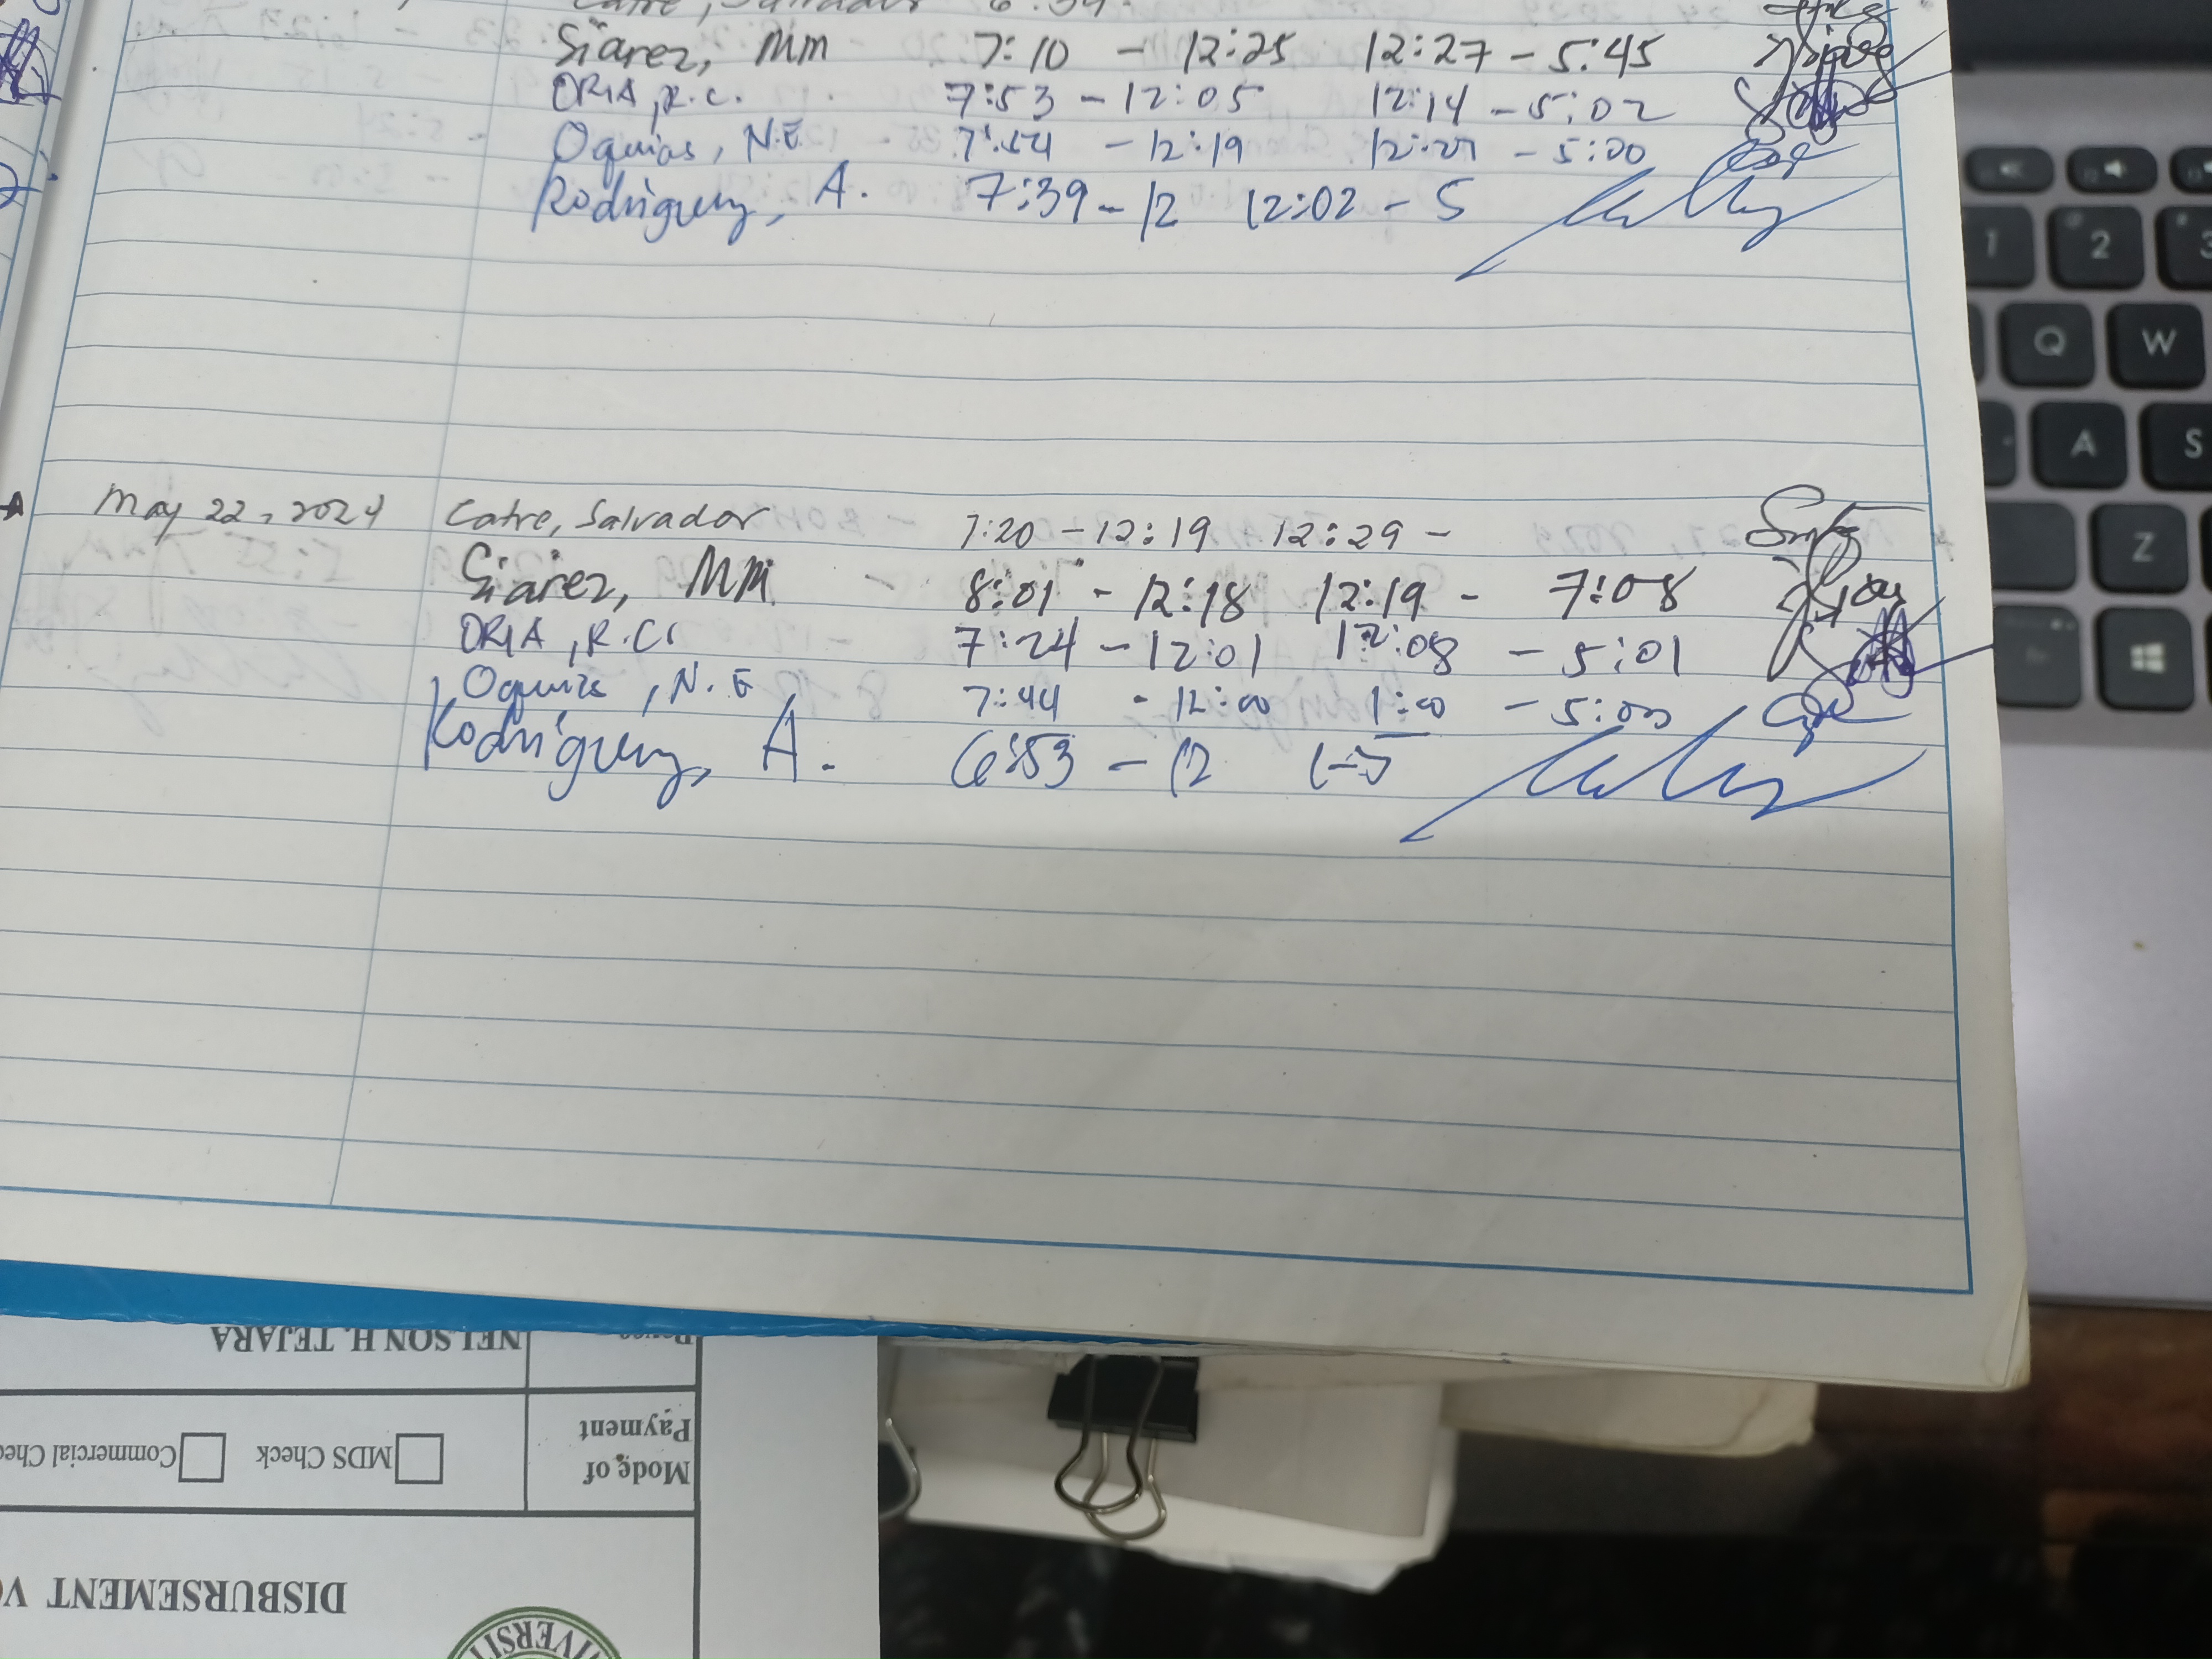 Catre, Salvador 6:39.
Siarez, MM 7:10 - 12:25 12:27 - 5:45
ORIA, R.C. 7:53 - 12:05 12:14 - 5:02
Oquias, N.E - 12:19 - 5:00
Rodriguez, A. 7:39 - 12 12:02 - 5
May 22, 2024 Catre, Salvador 7:20 - 12:19 12:29 -
Siarez, MM 8:01 - 12:18 12:19 - 7:08
ORIA, R.C. 7:24 - 12:01 12:08 - 5:01
Oquias, N.E 7:44 - 12:00 1:00 - 5:00
Rodriguez, A. 6:53 - 12 1-5
1 2 3
Q W
A S
Z
NELSON H. TEJARA
Mode of Payment
MDS Check
Commercial Chec
DISBURSEMENT VO
IVERSIT